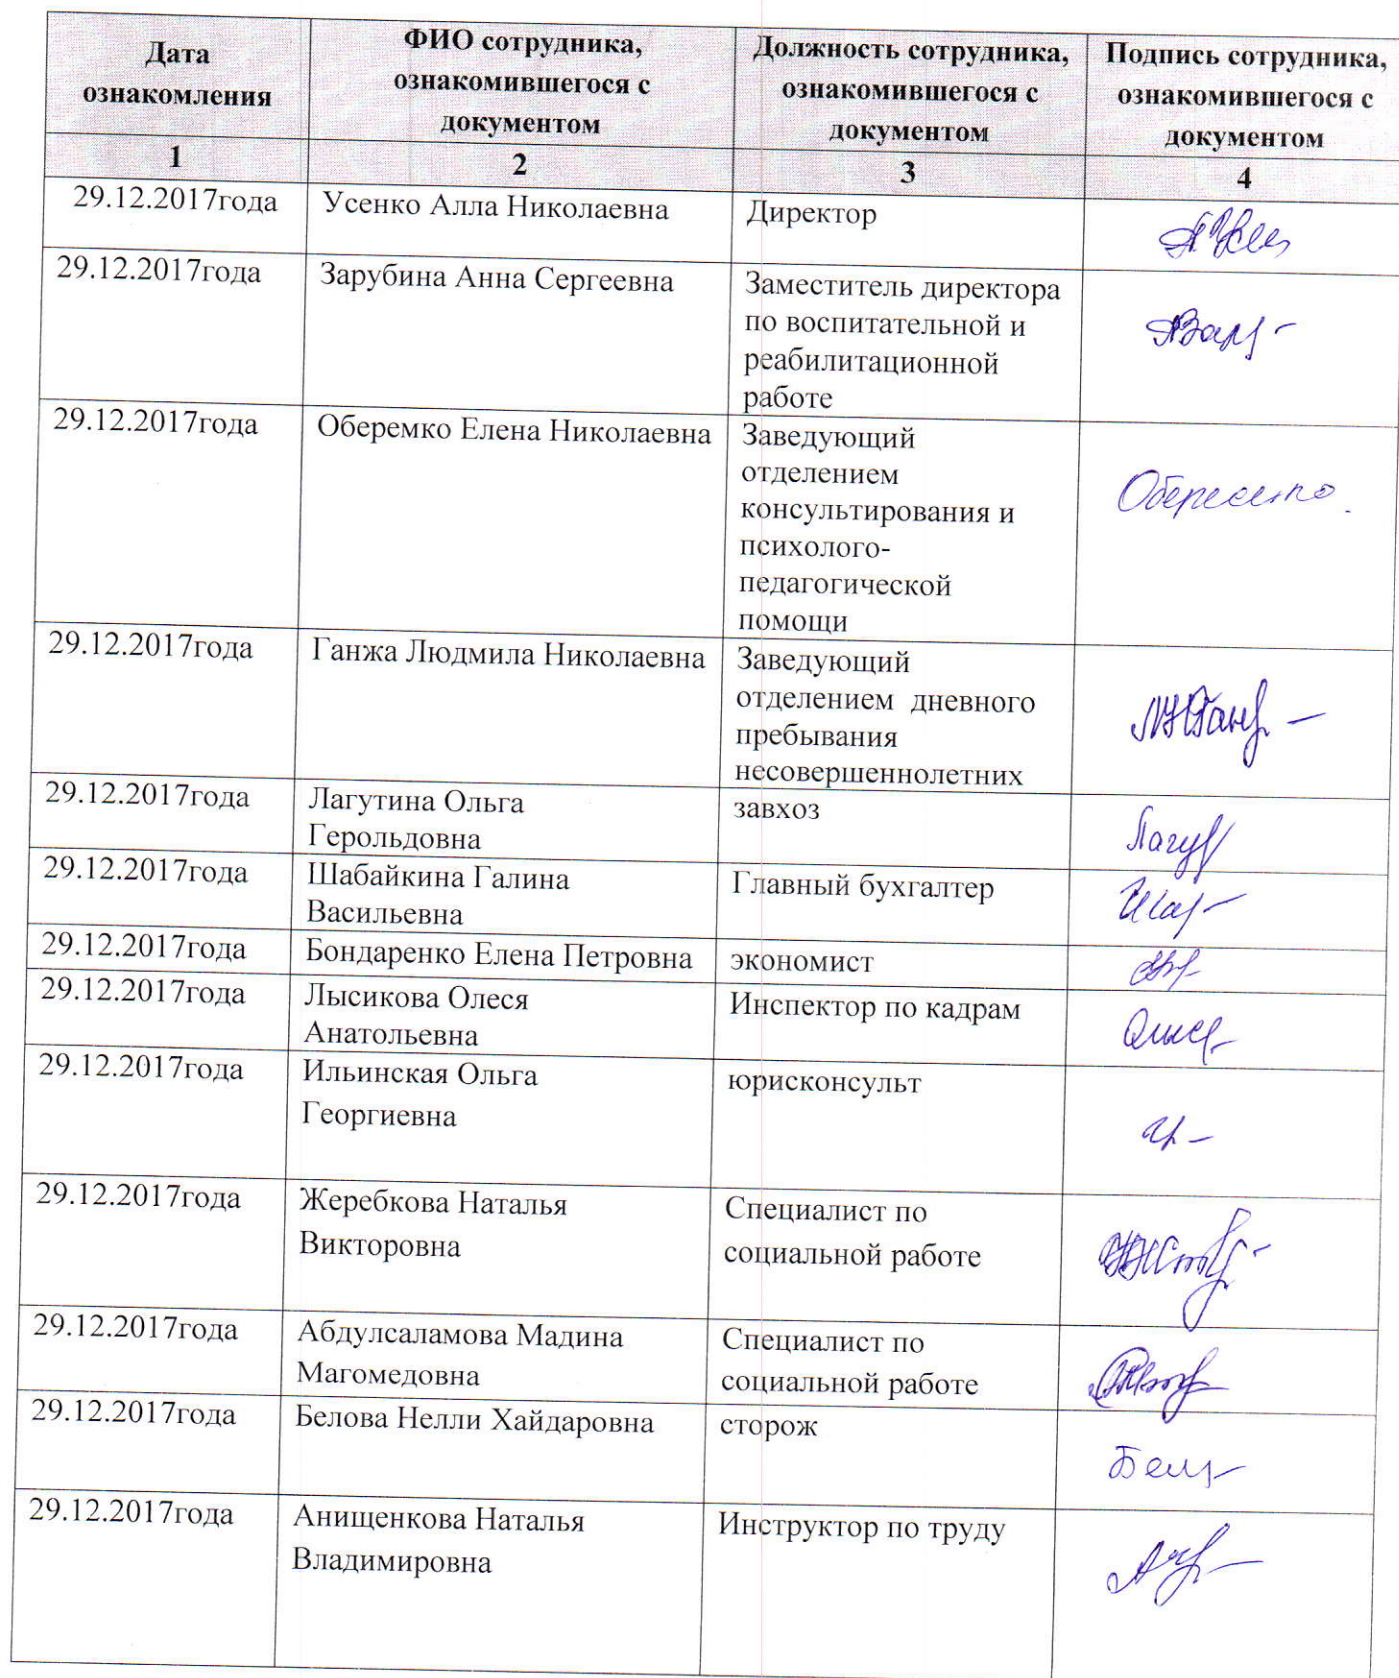 Дата
ознакомления
ФИО сотрудника,
ознакомившегося с
документом
Должность сотрудника,
ознакомившегося с
документом
Подпись сотрудника,
ознакомившегося с
документом
1
2
3
4
29.12.2017года
Усенко Алла Николаевна
Директор
29.12.2017года
Зарубина Анна Сергеевна
Заместитель директора
по воспитательной и
реабилитационной
работе
29.12.2017года
Оберемко Елена Николаевна
Заведующий
отделением
консультирования и
психолого-
педагогической
помощи
29.12.2017года
Ганжа Людмила Николаевна
Заведующий
отделением дневного
пребывания
несовершеннолетних
29.12.2017года
Лагутина Ольга
Герольдовна
завхоз
29.12.2017года
Шабайкина Галина
Васильевна
Главный бухгалтер
29.12.2017года
Бондаренко Елена Петровна
экономист
29.12.2017года
Лысикова Олеся
Анатольевна
Инспектор по кадрам
29.12.2017года
Ильинская Ольга
Георгиевна
юрисконсульт
29.12.2017года
Жеребкова Наталья
Викторовна
Специалист по
социальной работе
29.12.2017года
Абдулсаламова Мадина
Магомедовна
Специалист по
социальной работе
29.12.2017года
Белова Нелли Хайдаровна
сторож
29.12.2017года
Анищенкова Наталья
Владимировна
Инструктор по труду